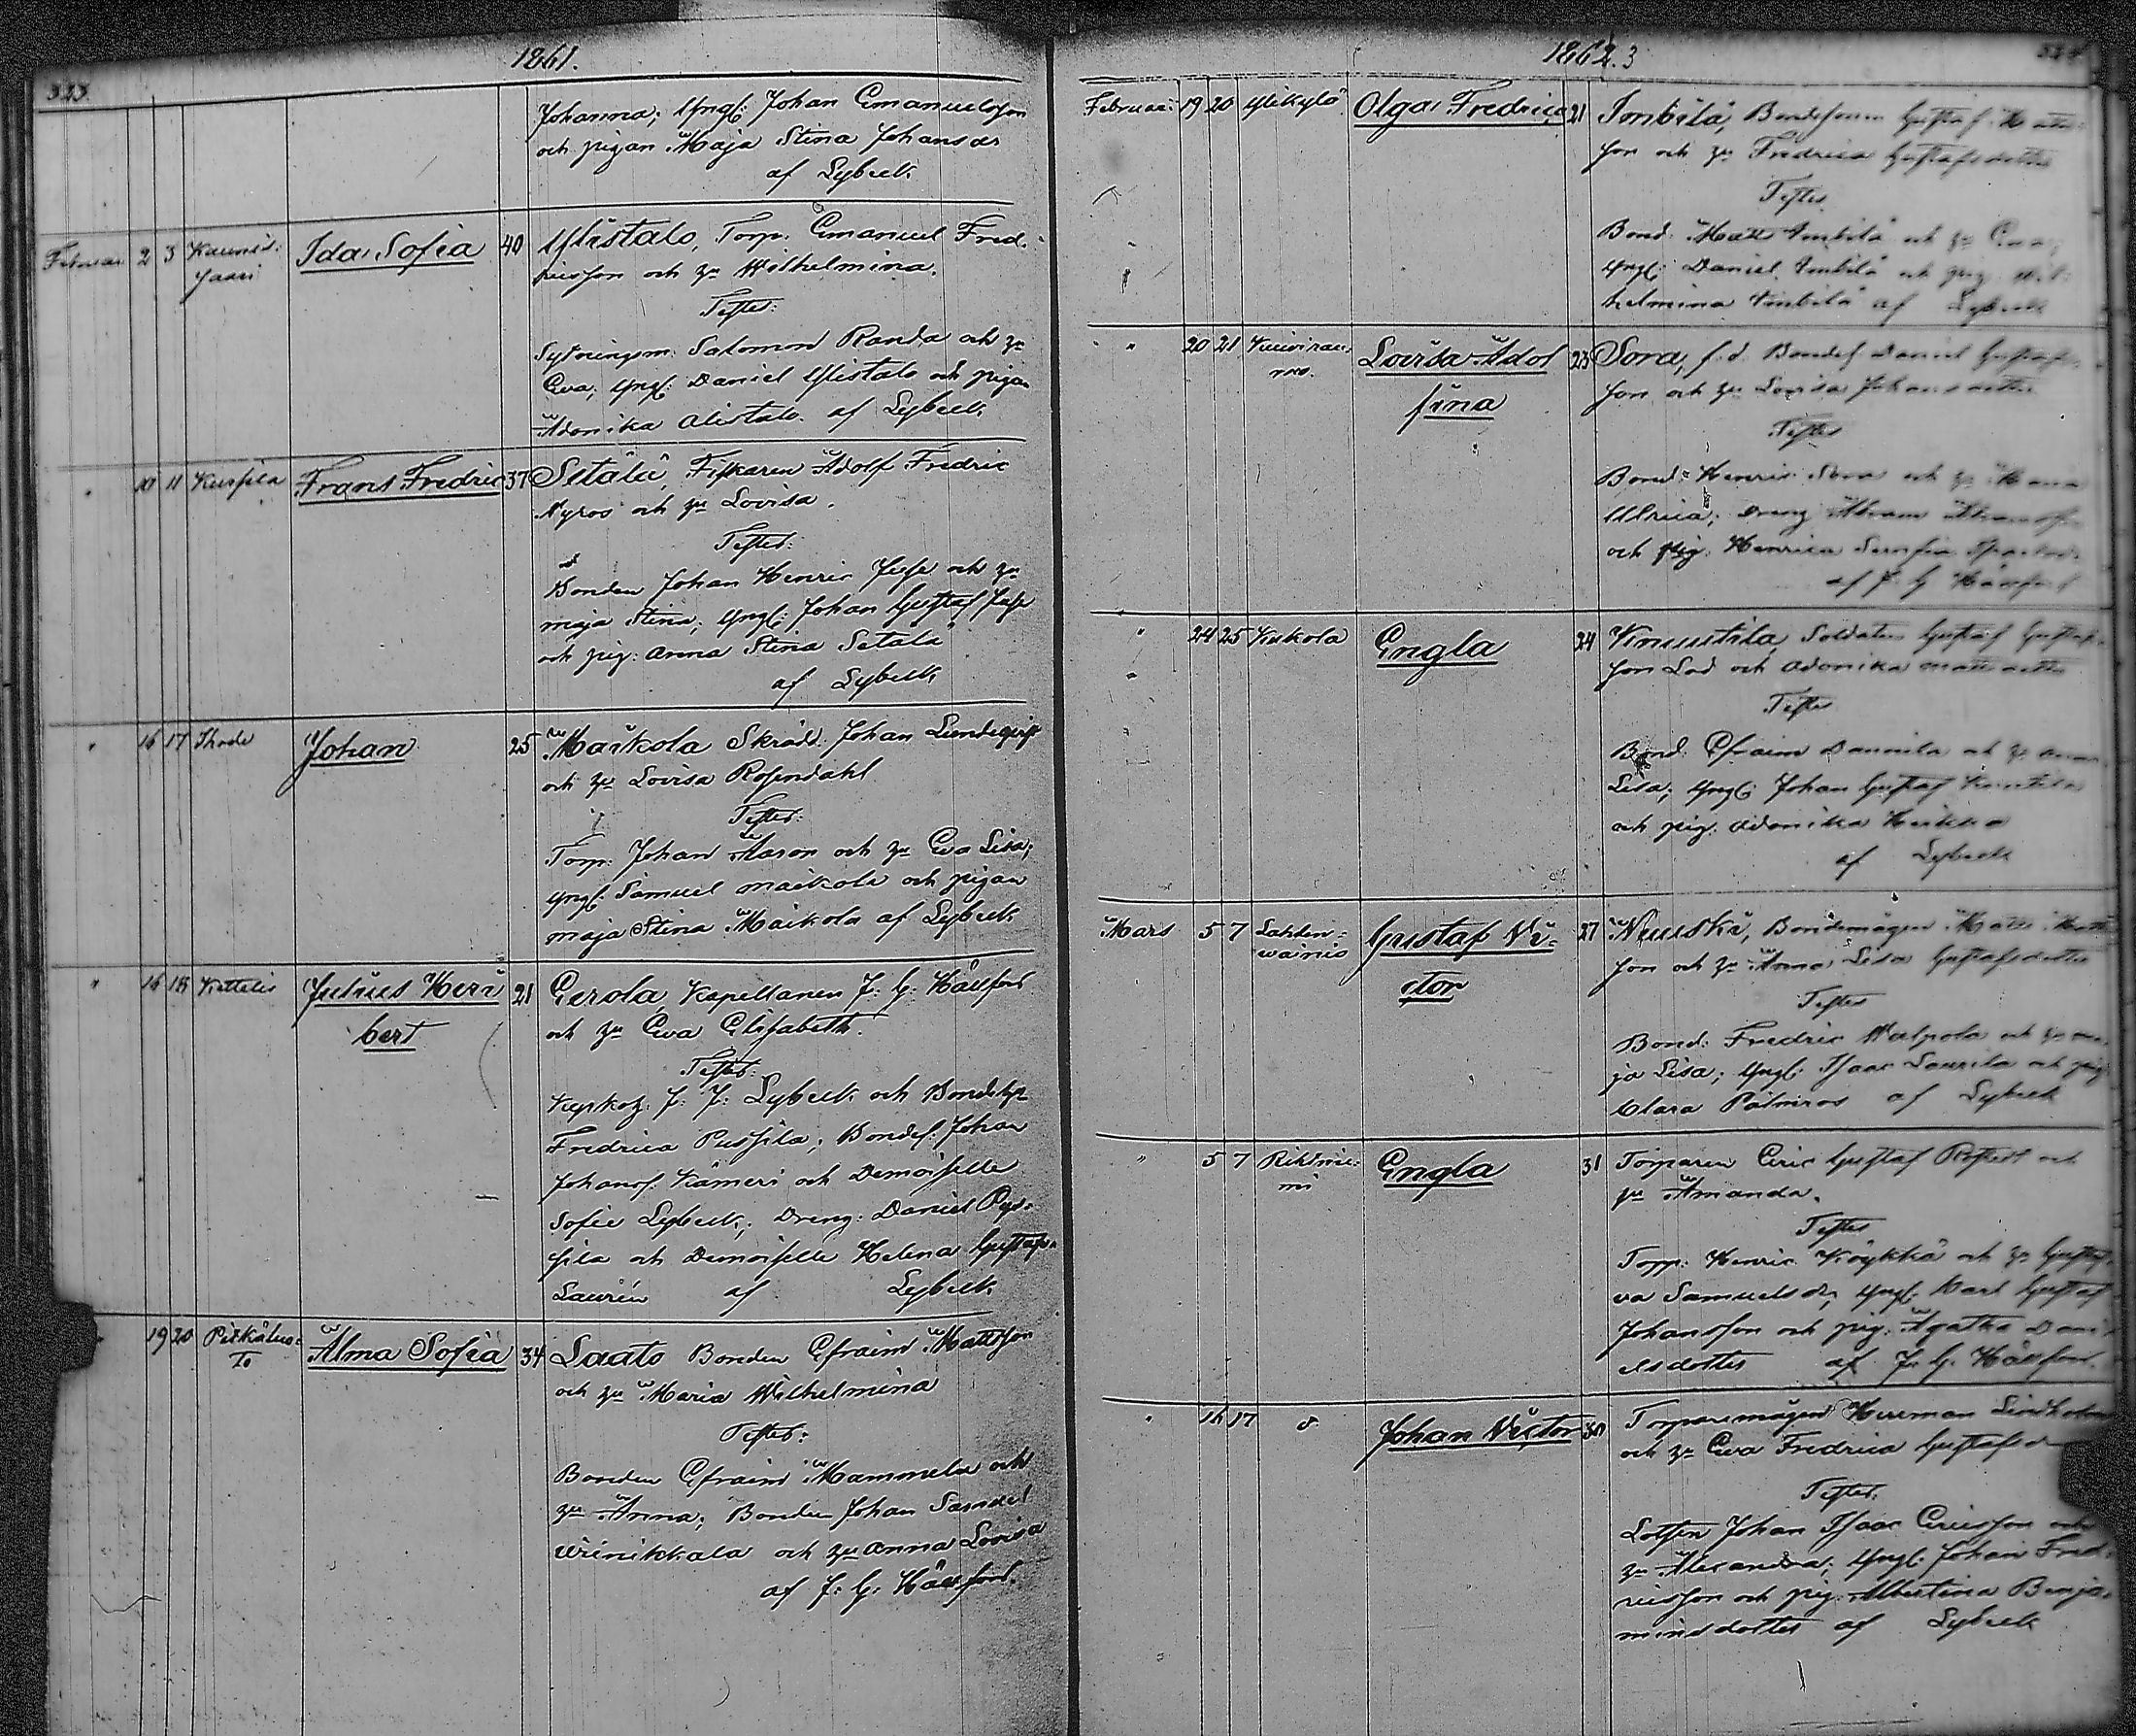 323
1861.
Johanna; Yngl: Johan Emanuelsson
och pigan Maja Stina Johansdr
af Lybeck
Februari 2 3 Kaunis-
saari
Ida Sofia 40 Ylistalo, Torp. Emanuel Fred-
ricsson och hu Wilhelmina.
Testes:
Sytningsm. Salomon Randa och hu
Eva; Yngl: Daniel Ylistalo och pigan
Adonika Alistalo. af Lybeck
" 10 11 Frans Fredric 37 Setälä, Fiskaren Adolf Fredric
Nyros och hu Lovisa.
Testes:
Bonden Johan Henric och hu
Maja Stina; Yngl: Johan Gustaf
och pig: Anna Stina Setälä
af Lybeck
" 16 17 Johan 25 Maikola Skrädd. Johan Lundeqvist
och hu Lovisa Rosendahl
Testes:
Torp: Johan Aaron och hu Eva Lisa;
Yngl: Samuel Maikola och pigan
Maja Stina Maikola af Lybeck
" 16 18 Kattelus Julius Heri-
bert
21 Gerola, Kapellanen J. G. Hällfors
och hu Eva Elisabeth.
Testes:
Kyrkoh. J. J. Lybeck och Bondehu
Fredrica Pussila; Bondes. Johan
Johans. Kämeri och Demoiselle
Sofie Lybeck; Dreng: Daniel Pus-
sila och Demoiselle Helena Gustafa
Laurén af Lybeck
19 20 Pitkäluo-
to
Alma Sofia 34 Laato Bonden Efraim Mattsson
och hu Maria Wilhelmina
Testes:
Bonden Efraim Mammela och
hu Anna; Bonden Johan Samuel
Winikkala och hu Anna Lovisa
af J. G. Hällfors.
1862.3
324
Februari 19 20 Ylikylä Olga Fredrica 21 Imbilä, Bondesonen Gustaf Matts-
son och hu Fredrica Gustafsdotter
Testes
Bond. Matts Imbilä och hu Eva;
Yngl: Daniel Imbilä och pig. Wil-
helmina Imbilä af Lybeck
" 20 21
Lovisa Adol-
fina
23 Sora, f.d. Bondes. Daniel Gustafs-
son och hu Lovisa Johansdotter
Testes
Bond: Henric Sora och hu
Ulrica; Dreng Abram
och pig. Henrica Serafia
af J. G. Hällfors
" 24 25 Kukola Engla 24 Knuutila, Soldaten Gustaf Gustafs-
son Lod och Adonika Mattsdotter
Testes
Bond. Efraim Dannila och hu Anna
Lisa; Yngl: Johan Gustaf Knuutila
och pig. Adonika Heikka
af Lybeck
Mars 5 7 Lahden-
wainio
Gustaf Vi-
ctor
27 Nuuski, Bondemågen Matts Matts-
son och hu Anna Lisa Gustafsdotter
Testes
Bond: Fredric Walpola och hu Ma-
ja Lisa; Yngl: Isaac Laurila och pig
Clara Palmros af Lybeck
" 5 7 Rihtnie-
mi
Engla 31 Torparen Eric Gustaf Rostedt och
hu Amanda.
Testes
Torp: Henric Köykkä och hu Gusta-
va Samuelsdr; Yngl: Karl Gustaf
Johansson och pig: Agatha Dani-
elsdotter af J. G. Hällfors.
" 16 17 Johan Victor 30 Torparemågen Herman Lindholm
och hu Eva Fredrica Gustafsdr
Testes:
Lotsen Johan Isaac Ericsson och
hu Alexandra; Yngl: Johan Fred-
ricsson och pig: Albertina Benja-
minsdotter af Lybeck